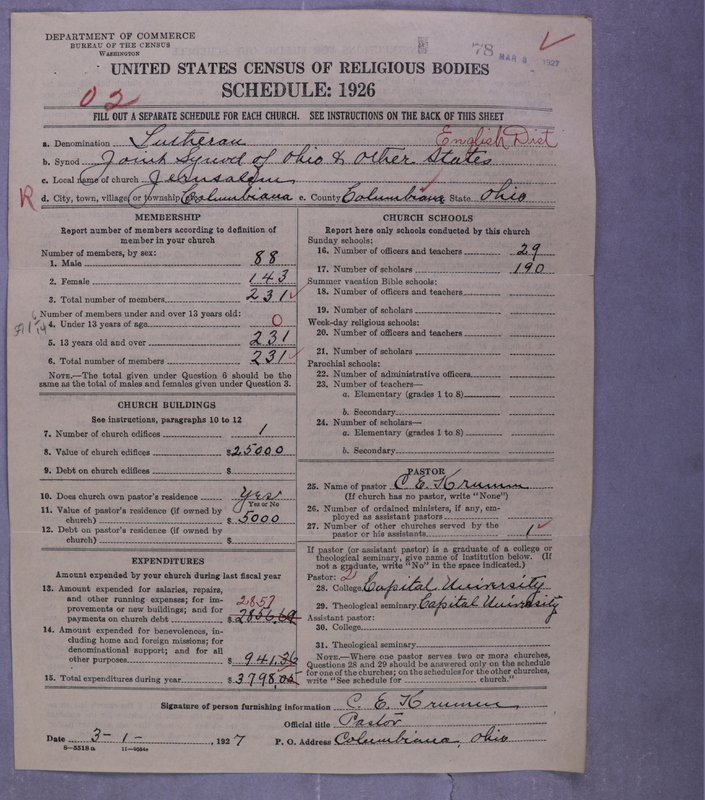 DEPARTMENT OF COMMERCE
BUREAU OF THE CENSUS
WASHINGTON
78
MAR 8 1927
UNITED STATES CENSUS OF RELIGIOUS BODIES
SCHEDULE: 1926
02
FILL OUT A SEPARATE SCHEDULE FOR EACH CHURCH. SEE INSTRUCTIONS ON THE BACK OF THIS SHEET
a. Denomination Lutheran English Dist
b. Synod Joint Synod of Ohio & Other States
c. Local name of church Jerusalem
R d. City, town, village, or township Columbiana e. County Columbiana State Ohio
MEMBERSHIP
Report number of members according to definition of
member in your church
Number of members, by sex:
1. Male 88
2. Female 143
3. Total number of members 231
Number of members under and over 13 years old:
4. Under 13 years of age 0
5. 13 years old and over 231
6. Total number of members 231
NOTE.—The total given under Question 6 should be the
same as the total of males and females given under Question 3.
CHURCH BUILDINGS
See instructions, paragraphs 10 to 12
7. Number of church edifices 1
8. Value of church edifices $25000
9. Debt on church edifices $
10. Does church own pastor's residence Yes
Yes or No
11. Value of pastor's residence (if owned by
church) $5000
12. Debt on pastor's residence (if owned by
church) $
EXPENDITURES
Amount expended by your church during last fiscal year
13. Amount expended for salaries, repairs,
and other running expenses; for im-
provements or new buildings; and for
payments on church debt $2856.69
2857
14. Amount expended for benevolences, in-
cluding home and foreign missions; for
denominational support; and for all
other purposes $941.36
15. Total expenditures during year $3798.05
CHURCH SCHOOLS
Report here only schools conducted by this church
Sunday schools:
16. Number of officers and teachers 29
17. Number of scholars 190
Summer vacation Bible schools:
18. Number of officers and teachers
19. Number of scholars
Week-day religious schools:
20. Number of officers and teachers
21. Number of scholars
Parochial schools:
22. Number of administrative officers
23. Number of teachers—
a. Elementary (grades 1 to 8)
b. Secondary
24. Number of scholars—
a. Elementary (grades 1 to 8)
b. Secondary
PASTOR
25. Name of pastor C. E. Krumm
(If church has no pastor, write "None")
26. Number of ordained ministers, if any, em-
ployed as assistant pastors
27. Number of other churches served by the
pastor or his assistants 1
If pastor (or assistant pastor) is a graduate of a college or
theological seminary, give name of institution below. (If
not a graduate, write "No" in the space indicated.)
Pastor: 2
28. College Capital University
29. Theological seminary Capital University
Assistant pastor:
30. College
31. Theological seminary
NOTE.—Where one pastor serves two or more churches,
Questions 28 and 29 should be answered only on the schedule
for one of the churches; on the schedules for the other churches,
write "See schedule for church."
Signature of person furnishing information C. E. Krumm
Official title Pastor
Date 3-1-, 1927 P. O. Address Columbiana, Ohio